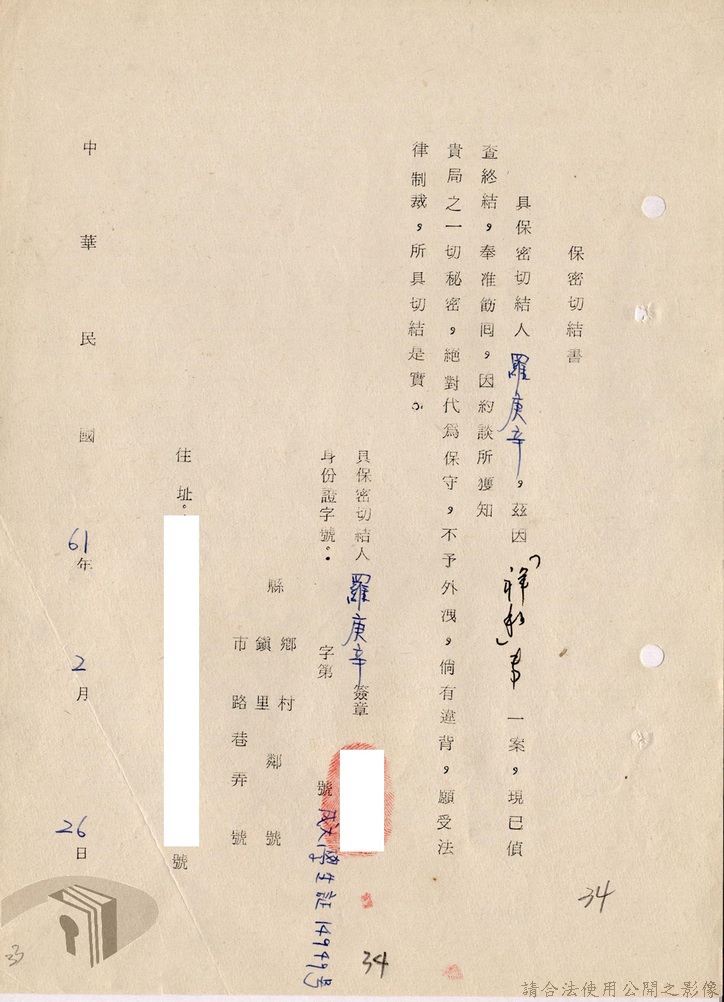 保密切結書
具保密切結人羅庚辛，茲因「祥和」專一案，現已偵
查終結，奉准飭回，因約談所獲知
貴局之一切秘密，絕對代為保守，不予外洩，倘有違背，願受法
律制裁，所具切結是實。
具保密切結人 羅庚辛 簽章
身份證字號： 字第 號 成大學生証14949号
縣 鄉鎮市 村里 鄰 路 巷 弄 號
住址： 號
中華民國 61年 2月 26日
34
34
33
請合法使用公開之影像